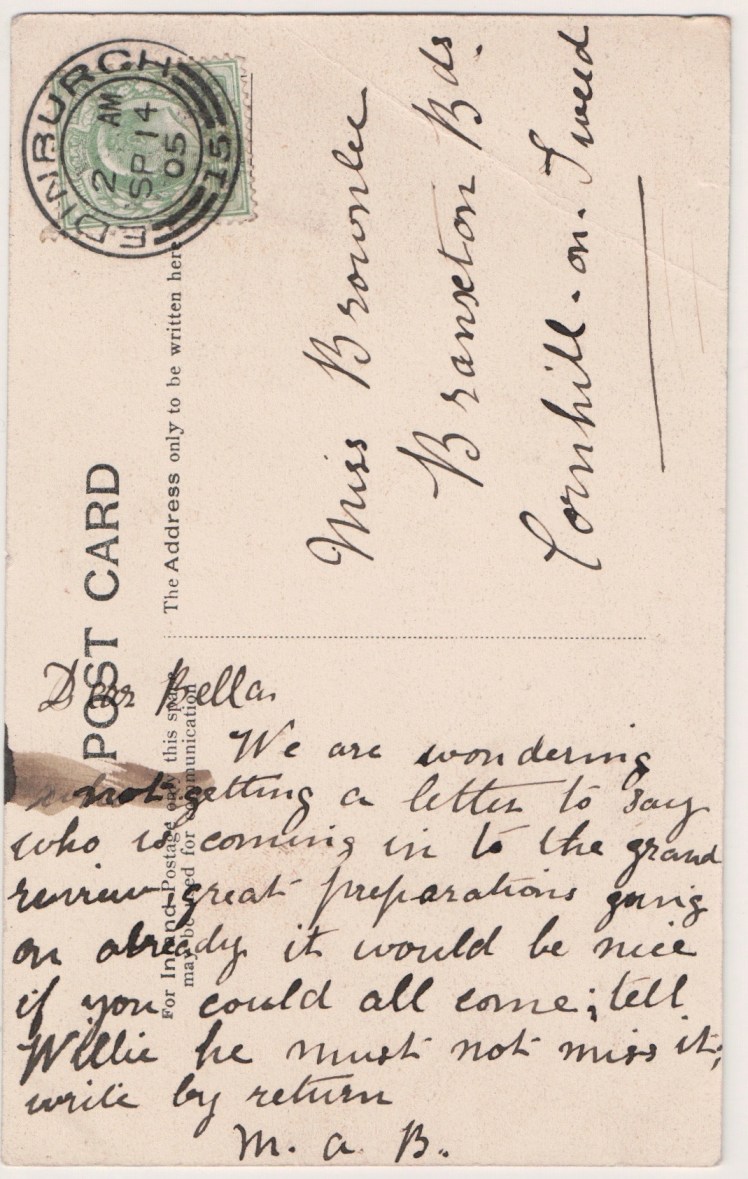 EDINBURGH
2 AM
SP 14
05
15
POST CARD
The Address only to be written here
For Inland Postage only this space
may be used for communication
Miss Brownlee
Branxton Bds.
Cornhill-on-Tweed
Dear Bella
We are wondering
not getting a letter to say
who is coming in to the grand
review great preparations going
on already it would be nice
if you could all come; tell
Willie he must not miss it;
write by return
M. a B.